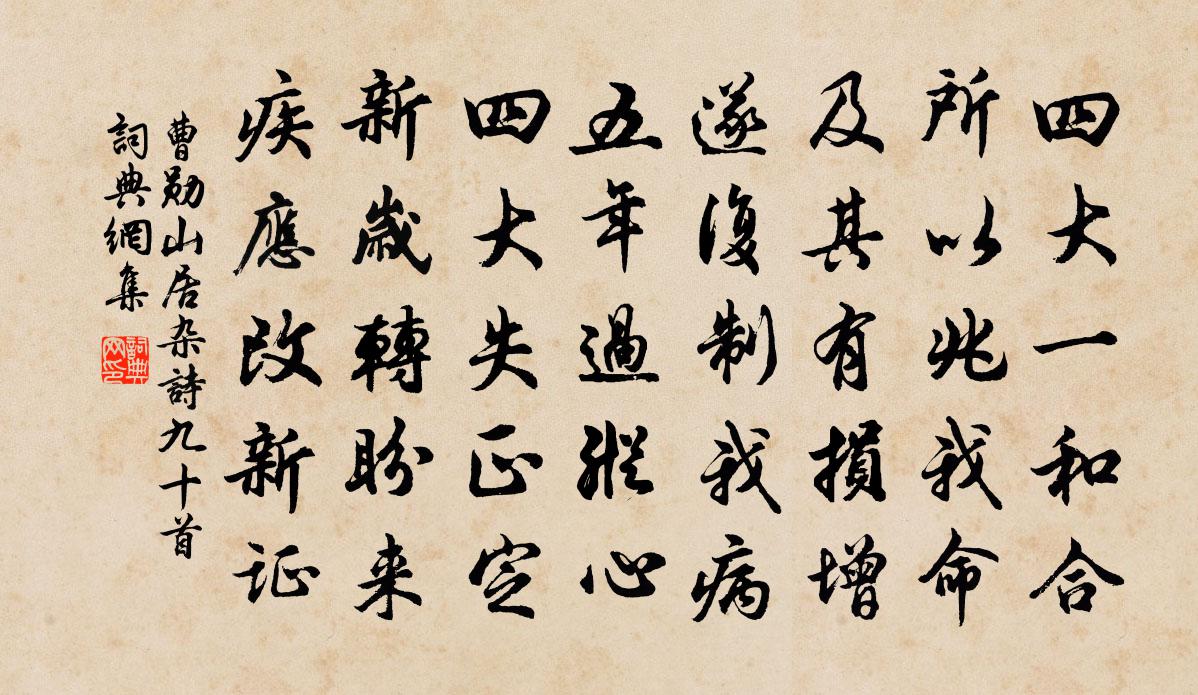 四大一和合
所以兆我命
及其有損增
遂復制我病
五年過縱心
四大失正定
新歲轉盼来
疾應改新证
曹勛山居杂詩九十首
詞典網集
詞典网印